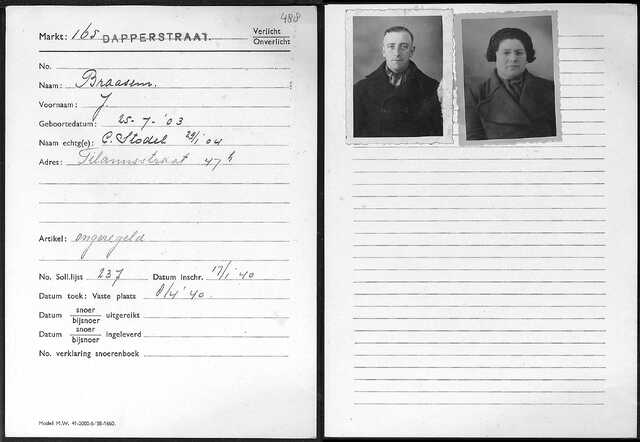 488
Markt: 165 DAPPERSTRAAT. Verlicht
Onverlicht
No.
Naam: Braassem.
Voornaam: J.
Geboortedatum: 25-7-'03
Naam echtg(e): C. Stodel 29/1 04
Adres: Tilanusstraat 47 h
Artikel: ongeregeld
No. Soll.lijst 237 Datum Inschr. 17/1 '40
Datum toek: Vaste plaats 8/4 '40.
Datum snoer
bijsnoer uitgereikt
Datum snoer
bijsnoer ingeleverd
No. verklaring snoerenboek
Model M.W.